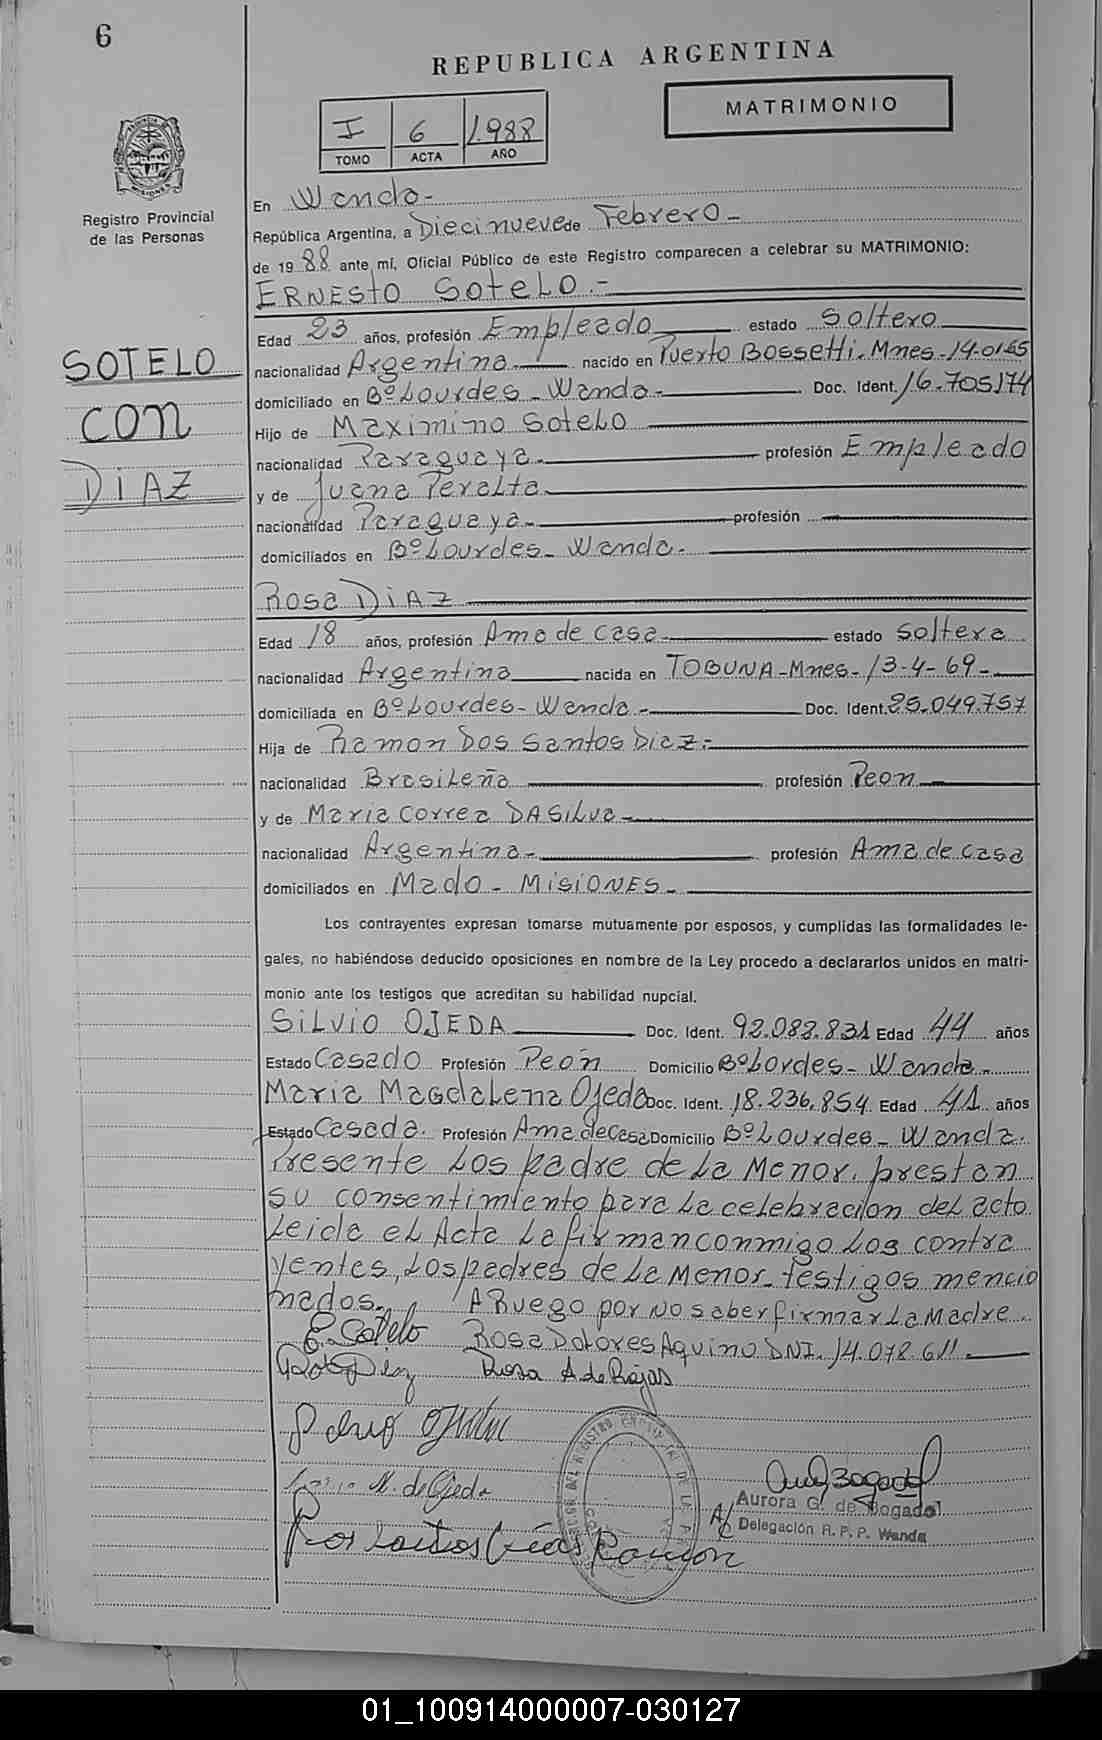 6
REPUBLICA ARGENTINA
MATRIMONIO
I 6 1.988
TOMO ACTA AÑO
Registro Provincial
de las Personas
SOTELO
CON
DIAZ
En Wanda-
República Argentina, a Diecinueve de Febrero-
de 1988 ante mí, Oficial Público de este Registro comparecen a celebrar su MATRIMONIO:
ERNESTO SOTELO.-
Edad 23 años, profesión Empleado estado Soltero
nacionalidad Argentina nacido en Puerto Bossetti-Mnes-14-01-65
domiciliado en Bº Lourdes-Wanda- Doc. Ident. 16.705174
Hijo de Maximino Sotelo
nacionalidad Paraguaya- profesión Empleado
y de Juana Peralta
nacionalidad Paraguaya- profesión
domiciliados en Bº Lourdes-Wanda-
Rosa DIAZ
Edad 18 años, profesión Ama de casa estado Soltera
nacionalidad Argentina nacida en TOBUNA-Mnes-13-4-69-
domiciliada en Bº Lourdes-Wanda- Doc. Ident. 25.049.757
Hija de Ramon Dos Santos Diaz-
nacionalidad Brasileña profesión Peon
y de Maria Correa DASilva-
nacionalidad Argentina- profesión Ama de casa
domiciliados en Mado-MISIONES-
Los contrayentes expresan tomarse mutuamente por esposos, y cumplidas las formalidades le-
gales, no habiéndose deducido oposiciones en nombre de la Ley procedo a declararlos unidos en matri-
monio ante los testigos que acreditan su habilidad nupcial.
SILVIO OJEDA Doc. Ident. 92.082.831 Edad 44 años
Estado Casado Profesión Peón Domicilio Bº Lordes-Wanda-
Maria Magdalena Ojeda Doc. Ident. 18.236.854 Edad 41 años
Estado Casada. Profesión Ama de Casa Domicilio Bº Lourdes-Wanda.
Presente Los padre de La Menor, prestan
su consentimiento para La celebracion del acto
Leida el Acta La firman conmigo Los contra
yentes, Los padres de La Menor-testigos mencio
nados.- A Ruego por no saber firmar La Madre
E. Sotelo Rosa Dolores Aquino DNI. 14.078.611.
Rosa A de Rojas
M. de Ojeda
Aurora G. de Bogado
Delegación R. P. P. Wanda
Dos Santos Dias Ramon
01_100914000007-030127